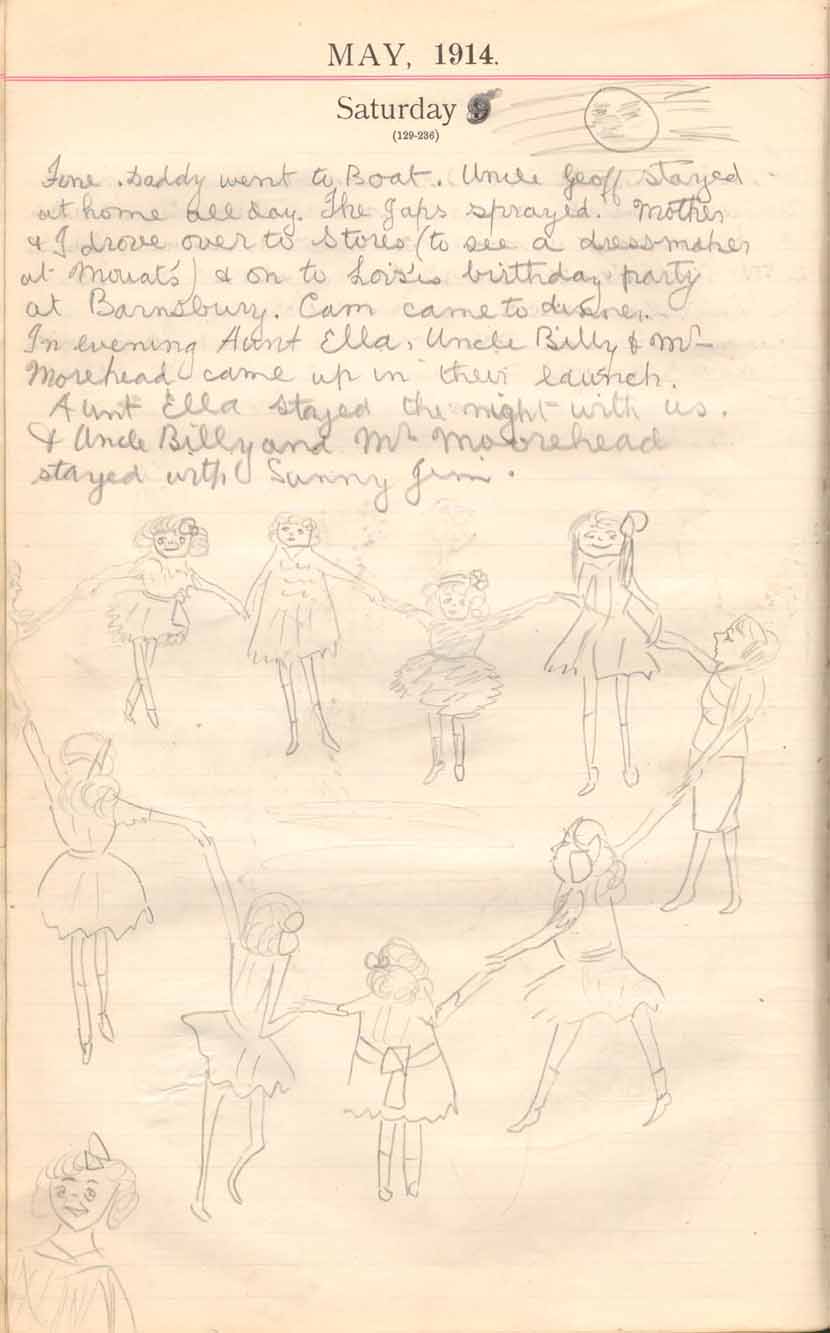 MAY, 1914.
Saturday 9
(129-236)
Fine. Daddy went to Boat. Uncle Geoff stayed
at home all day. The Japs sprayed. Mother
& I drove over to Stores (to see a dressmaker
at Mouat's) & on to Lois's birthday party
at Barnsbury. Cam came to dinner.
In evening Aunt Ella, Uncle Billy & Mr
Morehead came up in their launch.
Aunt Ella stayed the night with us.
& Uncle Billy and Mr Moorehead
stayed with Sunny Jim.